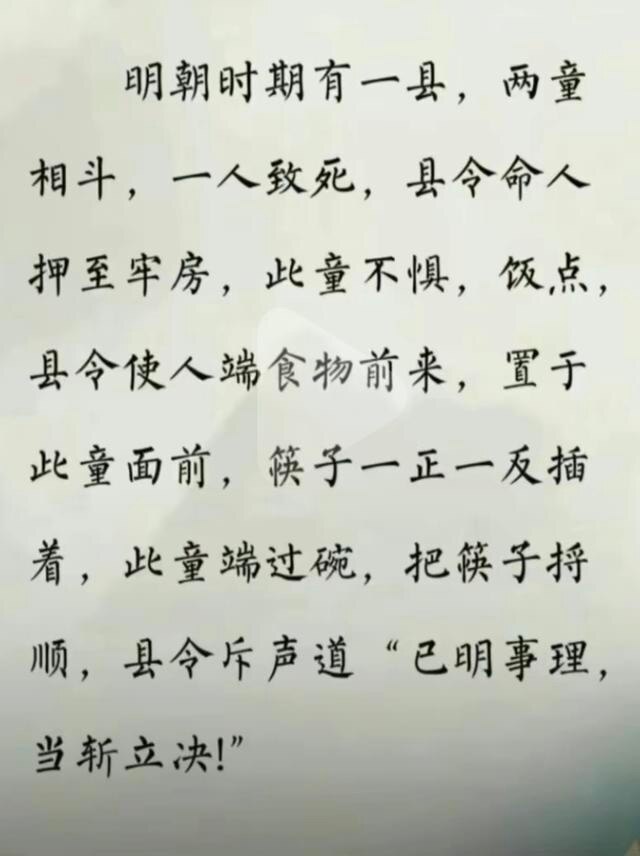 明朝时期有一县，两童
相斗，一人致死，县令命人
押至牢房，此童不惧，饭点，
县令使人端食物前来，置于
此童面前，筷子一正一反插
着，此童端过碗，把筷子捋
顺，县令斥声道“已明事理，
当斩立决!”